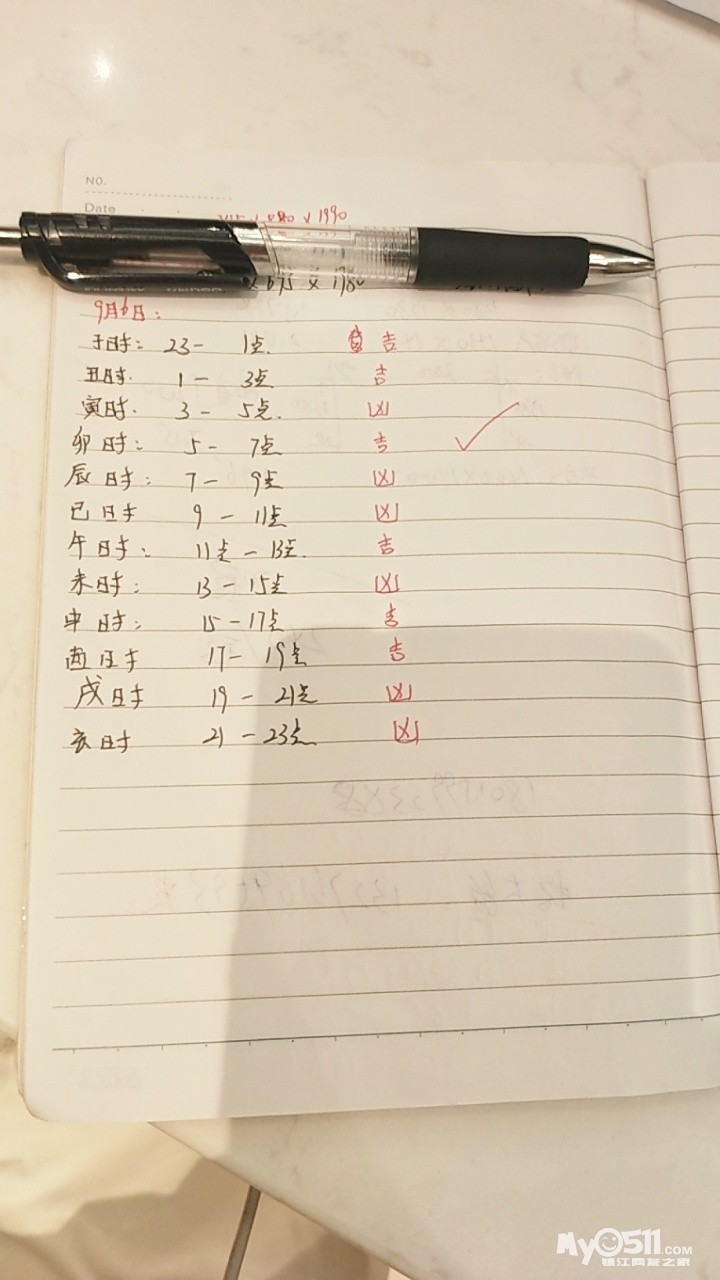 NO.
Date
x 1990
x 675 x 1980
9月6日:
子时: 23- 1点. 吉
丑时. 1 - 3点 吉
寅时. 3 - 5点. 凶
卯时: 5 - 7点 吉 ✓
辰时: 7 - 9点 凶
巳时 9 - 11点 凶
午时: 11点 - 13点. 吉
未时: 13 - 15点 凶
申时: 15-17点 吉
酉时 17- 19点 吉
戌时 19 - 21点 凶
亥时 21 - 23点 凶
My0511.COM
镇江网友之家